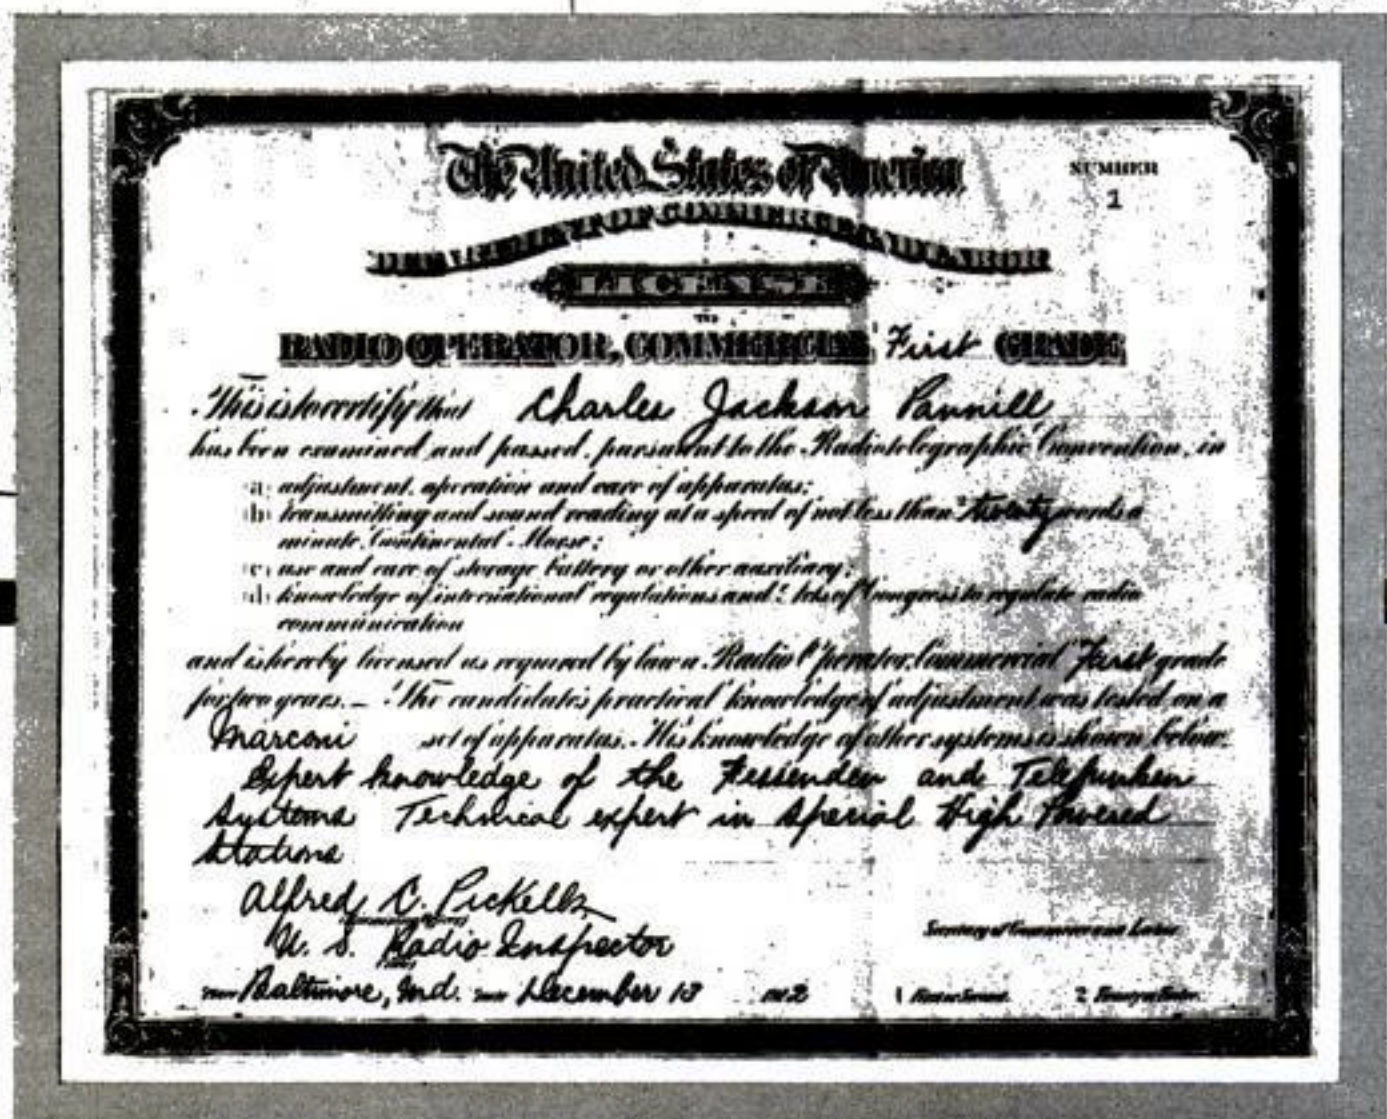 The United States of America
NUMBER
1
DEPARTMENT OF COMMERCE AND LABOR
LICENSE
TO
RADIO OPERATOR, COMMERCIAL First GRADE
This is to certify that Charles Jackson Pannill
has been examined and passed, pursuant to the Radiotelegraphic Convention, in
(a) adjustment, operation and care of apparatus;
(b) transmitting and sound reading at a speed of not less than twenty words a
minute, Continental Morse;
(c) use and care of storage battery or other auxiliary;
(d) knowledge of international regulations and Acts of Congress to regulate radio
communication
and is hereby licensed as required by law a Radio Operator, Commercial First grade
for two years. - The candidate's practical knowledge of adjustment was tested on a
Marconi set of apparatus. His knowledge of other systems is shown below:
Expert knowledge of the Fessenden and Telefunken
Systems Technical expert in special High Powered
Stations
Alfred C. Pickells
U. S. Radio Inspector
Secretary of Commerce and Labor.
Place Baltimore, Md. Date December 13 1912
1 First or Second. 2 Twenty or Twelve.